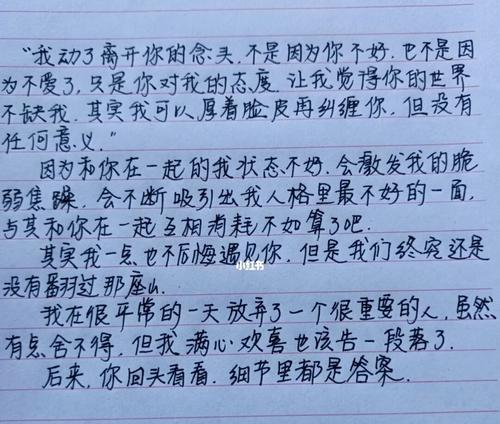 “我动了离开你的念头，不是因为你不好．也不是因
为不爱了，只是你对我的态度．让我觉得你的世界
不缺我．其实我可以厚着脸皮再纠缠你，但没有
任何意义．”
因为和你在一起的我状态不好．会激发我的脆
弱焦躁，会不断吸引出我人格里最不好的一面，
与其和你在一起互相消耗不如算了吧．
其实我一点也不后悔遇见你，但是我们终究还是
没有翻过那座山．
小红书
我在很平常的一天放弃了一个很重要的人，虽然
有点舍不得，但我满心欢喜也该告一段落了．
后来，你回头看看．细节里都是答案．